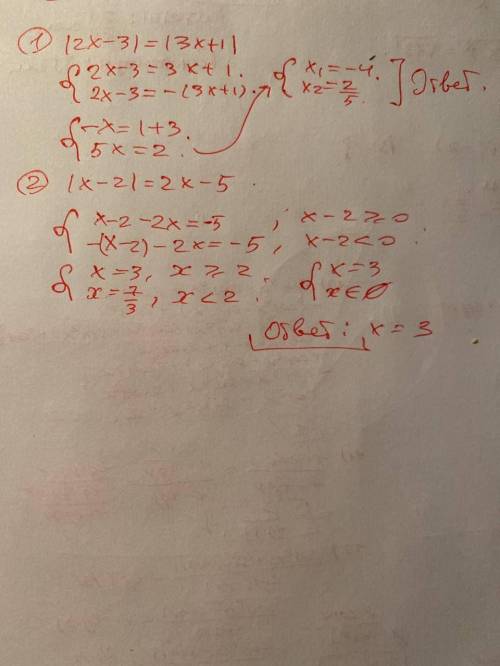 ① |2x-3|=|3x+1|
{ 2x-3=3x+1. { x₁=-4.
2x-3=-(3x+1). x₂=2/5. ] Ответ.
{ -x=1+3.
5x=2.
② |x-2|=2x-5
{ x-2-2x=-5, x-2≥0
-(x-2)-2x=-5, x-2<0.
{ x=3, x≥2 { x=3
x=7/3, x<2. x∈∅
Ответ: x=3